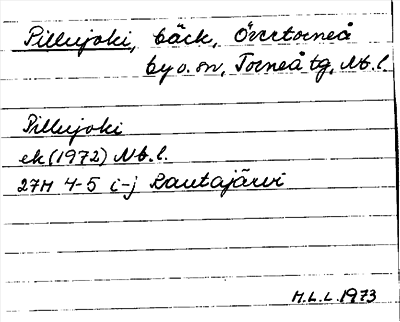 Pillujoki, bäck, Övertorneå
by o. sn, Torneå tg, Nb.l.
Pillujoki
ek (1972) Nb.l.
27M 4-5 i-j Rautajärvi
H.L.L. 1973